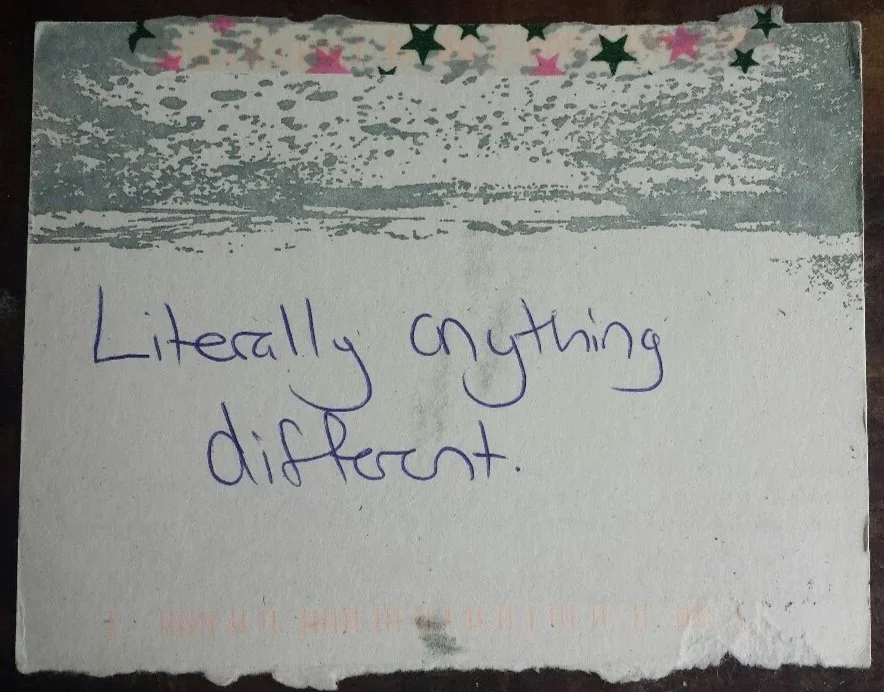 Literally anything
different.